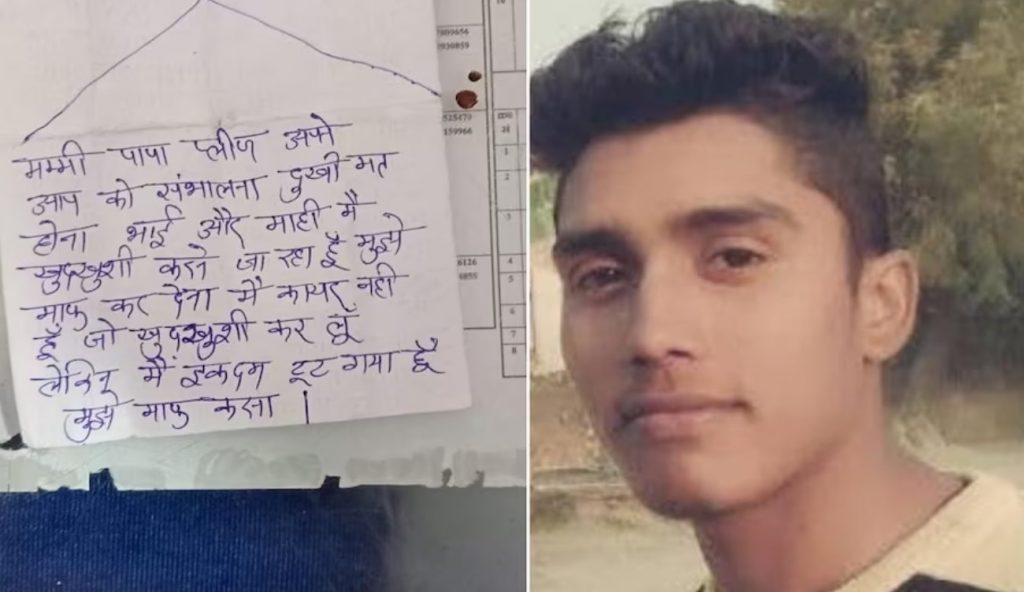 मम्मी पापा प्लीज अपने
आप को संभालना दुखी मत
होना भाई और माही मैं
खुदखुशी करने जा रहा हूँ मुझे
माफ कर देना मैं कायर नही
हूँ जो खुदखुशी कर लूँ
लेकिन मैं इकदम टूट गया हूँ
मुझे माफ करना ।
7809656
525470
159966
6126
6855
1
2
3
4
5
6
7
8